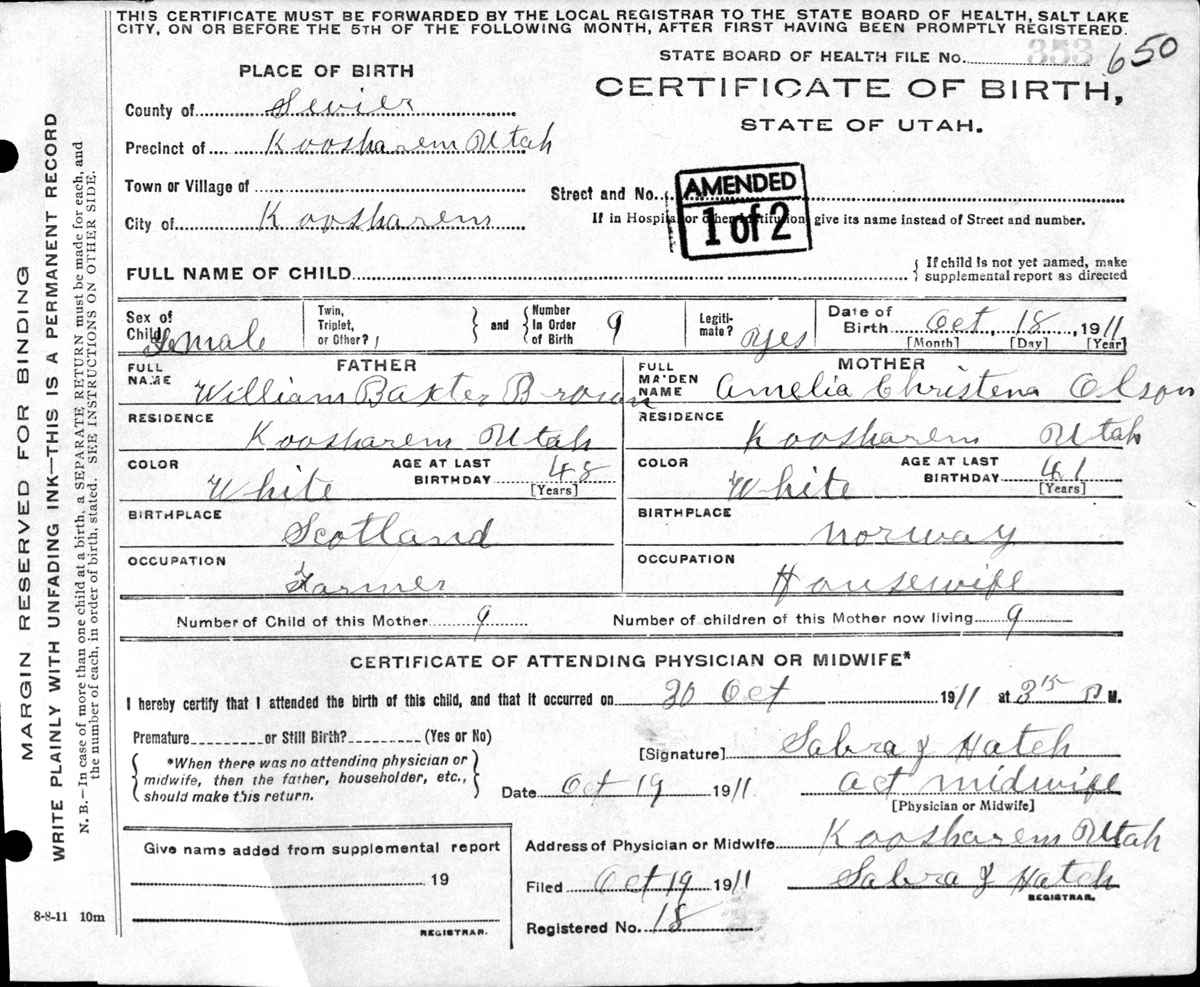 THIS CERTIFICATE MUST BE FORWARDED BY THE LOCAL REGISTRAR TO THE STATE BOARD OF HEALTH, SALT LAKE
CITY, ON OR BEFORE THE 5TH OF THE FOLLOWING MONTH, AFTER FIRST HAVING BEEN PROMPTLY REGISTERED.
STATE BOARD OF HEALTH FILE No. 353 650
PLACE OF BIRTH
CERTIFICATE OF BIRTH,
STATE OF UTAH.
County of Sevier
Precinct of Koosharem Utah
Town or Village of
Street and No.
AMENDED
1 of 2
City of Koosharem
If in Hospital or other Institution, give its name instead of Street and number.
FULL NAME OF CHILD
{ If child is not yet named, make
supplemental report as directed
Sex of
Child Female
Twin,
Triplet,
or Other?
and
Number
In Order
of Birth 9
Legiti-
mate? Yes
Date of
Birth Oct, 18, 1911
[Month] [Day] [Year]
FATHER
FULL
NAME William Baxter Brown
MOTHER
FULL
MAIDEN
NAME Amelia Christena Olson
RESIDENCE
Koosharem Utah
RESIDENCE
Koosharem Utah
COLOR
White
AGE AT LAST
BIRTHDAY 48
[Years]
COLOR
White
AGE AT LAST
BIRTHDAY 41
[Years]
BIRTHPLACE
Scotland
BIRTHPLACE
Norway
OCCUPATION
Farmer
OCCUPATION
Housewife
Number of Child of this Mother 9
Number of children of this Mother now living 9
CERTIFICATE OF ATTENDING PHYSICIAN OR MIDWIFE*
I hereby certify that I attended the birth of this child, and that it occurred on 30 Oct 1911 at 3 15 P M.
Premature or Still Birth? (Yes or No)
*When there was no attending physician or
midwife, then the father, householder, etc.,
should make this return.
[Signature] Sabra J Hatch
Date Oct 19 1911
act midwife
[Physician or Midwife]
Give name added from supplemental report
19
REGISTRAR.
Address of Physician or Midwife Koosharem Utah
Filed Oct 19 1911
Sabra J Hatch
REGISTRAR.
Registered No. 18
8-8-11 10m
MARGIN RESERVED FOR BINDING
WRITE PLAINLY WITH UNFADING INK—THIS IS A PERMANENT RECORD
N. B.—In case of more than one child at a birth, a SEPARATE RETURN must be made for each, and
the number of each, in order of birth, stated. SEE INSTRUCTIONS ON OTHER SIDE.